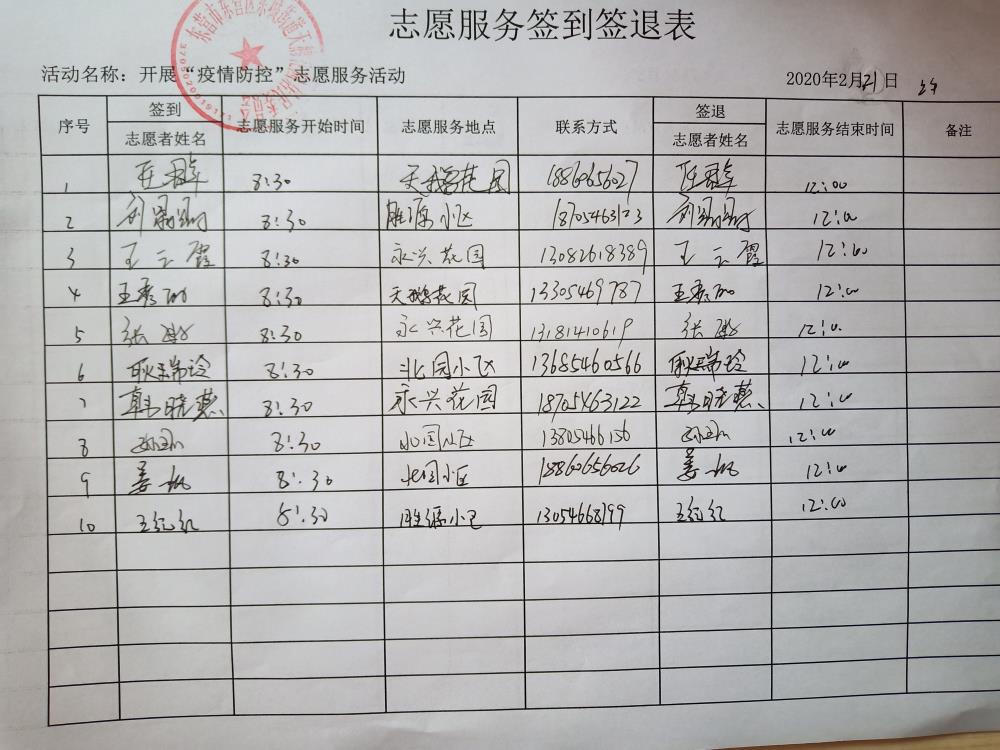 志愿服务签到签退表
活动名称：开展“疫情防控”志愿服务活动 2020年2月21日
序号 签到 志愿服务开始时间 志愿服务地点 联系方式 签退 志愿服务结束时间 备注
志愿者姓名 志愿者姓名
1 8:30 天鹅花园 18860656027 12:00
2 8:30 胜源小区 18705463123 12:00
3 王云霞 8:30 永兴花园 13082618389 王云霞 12:00
4 8:30 天鹅花园 13305469787 12:00
5 张 8:30 永兴花园 13181410619 张 12:00
6 耿瑞玲 8:30 北园小区 13685460566 耿瑞玲 12:00
7 韩晓慧 8:30 永兴花园 18705463122 韩晓慧 12:00
8 8:30 北园小区 13805466156 12:00
9 姜帆 8:30 北园小区 18860656026 姜帆 12:00
10 王红红 8:30 胜源小区 13054668199 王红红 12:00